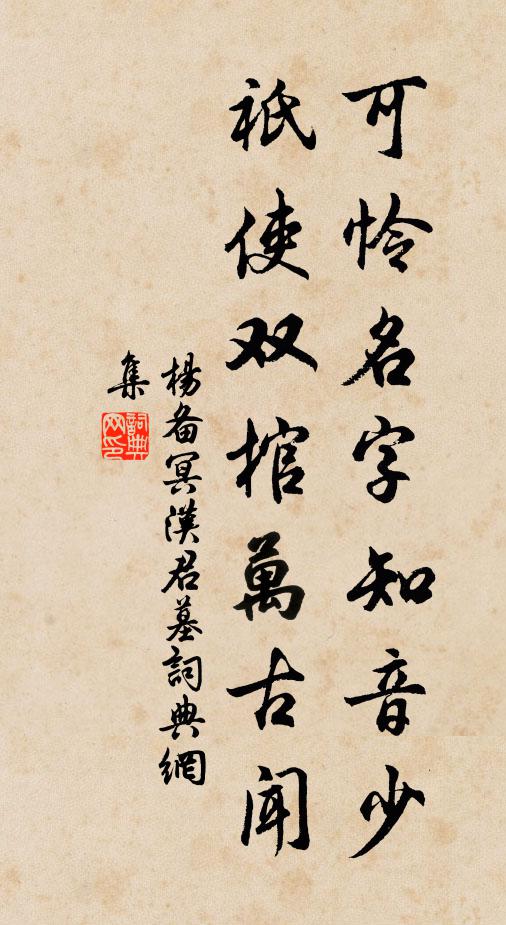 可怜名字知音少
祇使双棺萬古闻
楊备冥漢君墓詞典網
集
詞典
网印